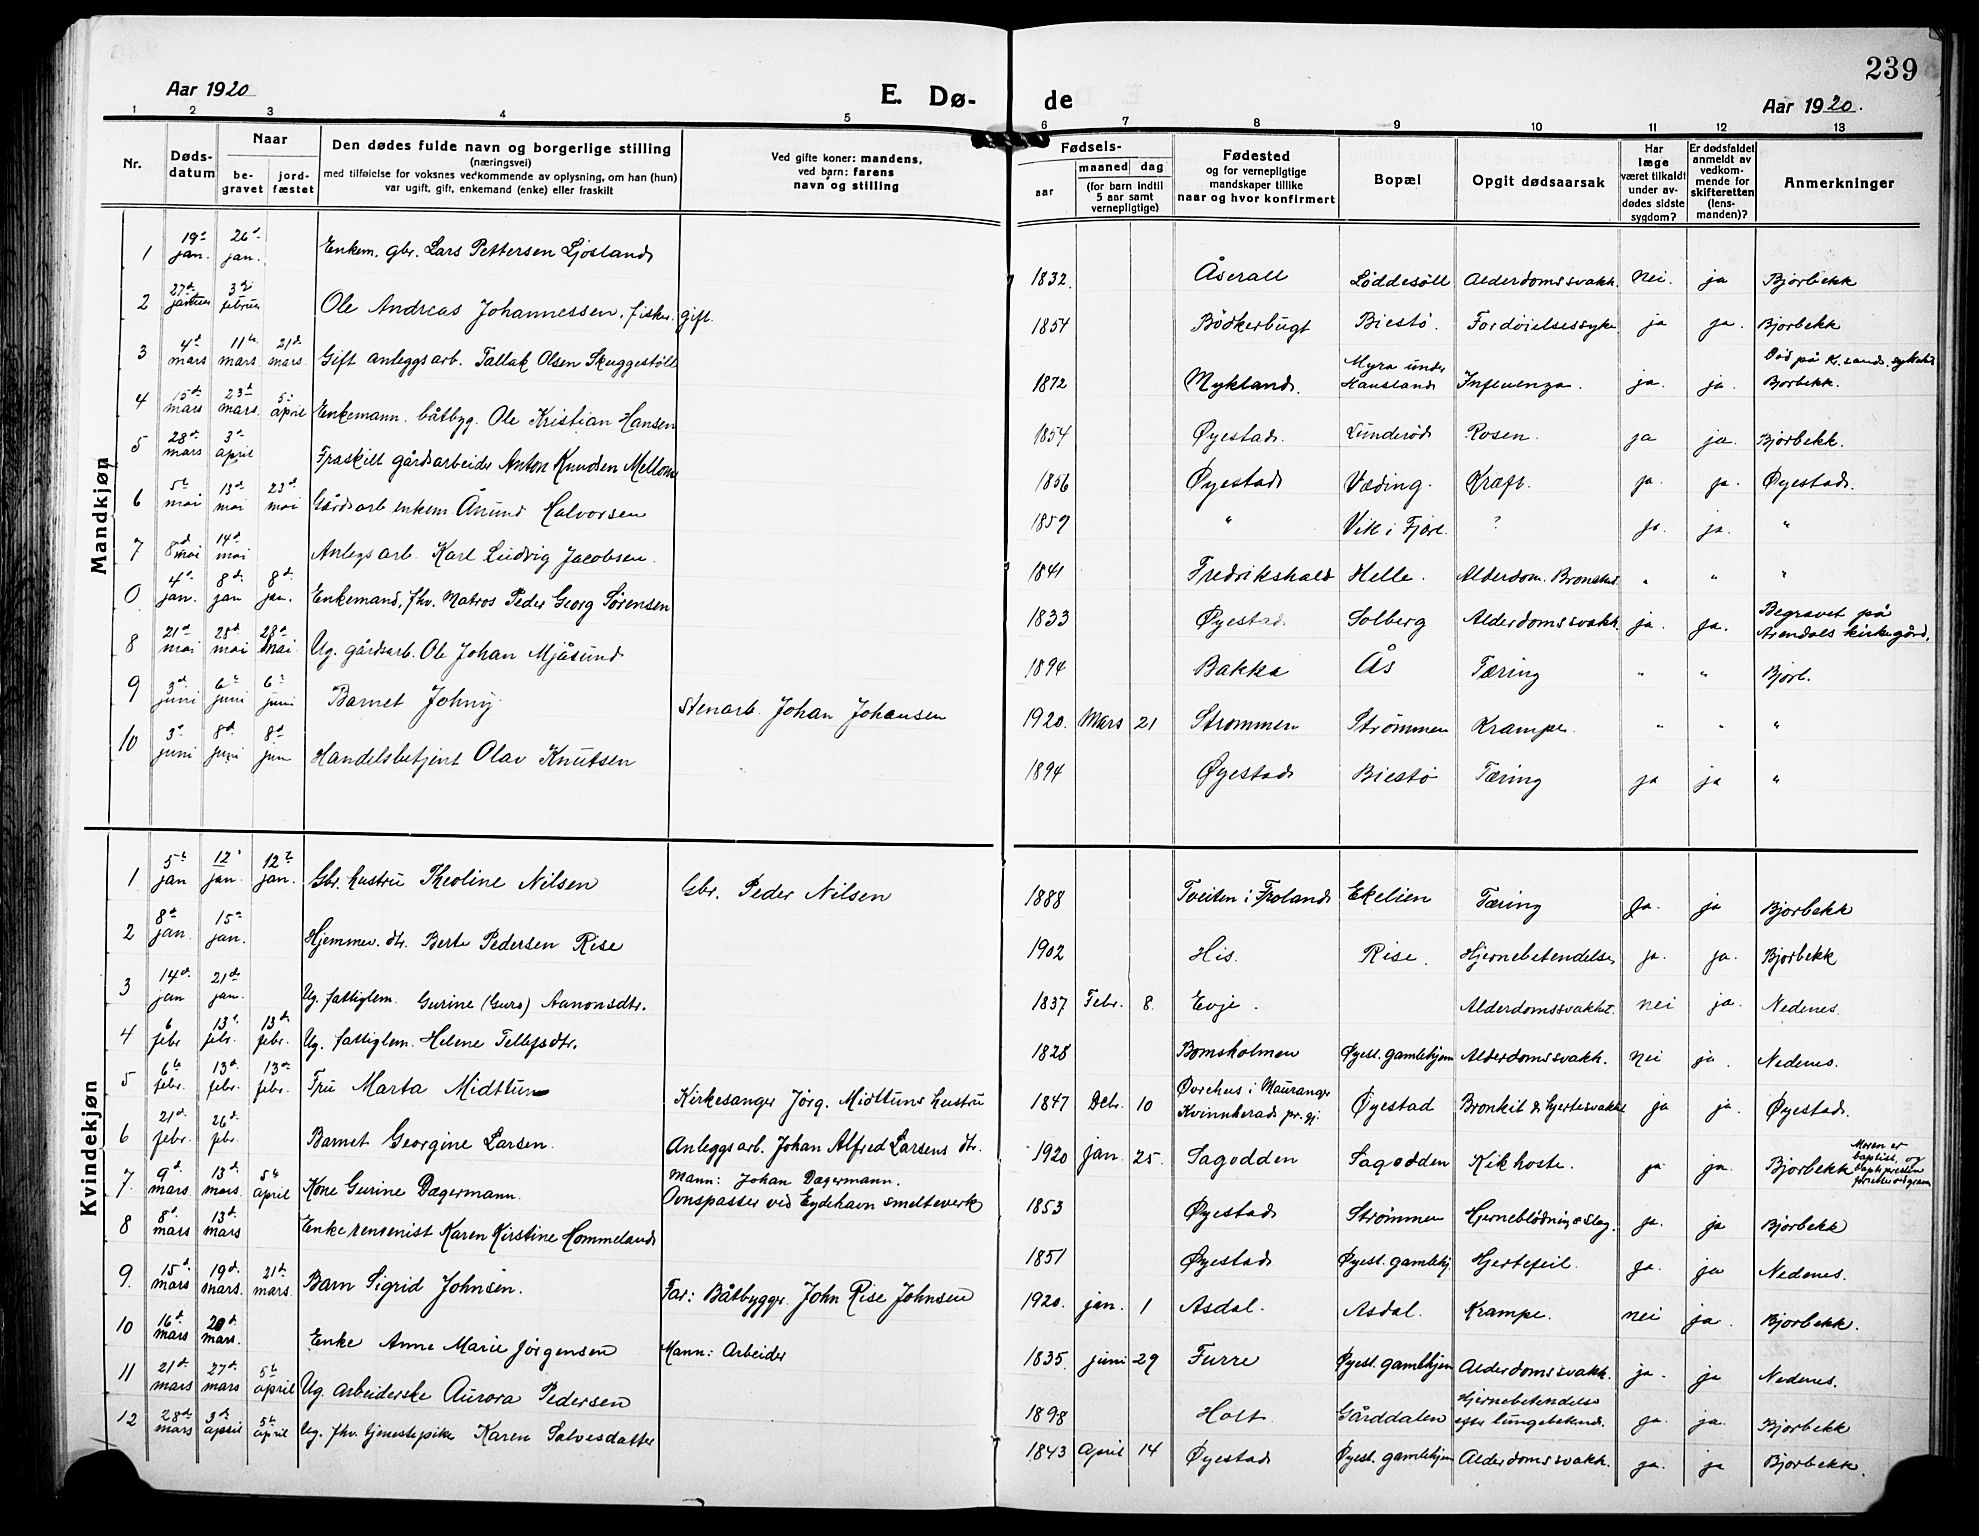 239
Aar 1920
E. Dø-
de
Aar 1920.
1 2 3 4 5 6 7 8 9 10 11 12 13
Nr.
Døds-
datum
Naar
be-
gravet
jord-
fæstet
Den dødes fulde navn og borgerlige stilling
(næringsvei)
med tilføielse for voksnes vedkommende av oplysning, om han (hun)
var ugift, gift, enkemand (enke) eller fraskilt
Ved gifte koner: mandens,
ved børn: farens
navn og stilling
Fødsels-
aar
maaned dag
(for barn indtil
5 aar samt
vernepligtige)
Fødested
og for vernepligtige
mandskaper tillike
naar og hvor konfirmert
Bopæl
Opgit dødsaarsak
Har
læge
været tilkaldt
under av-
dødes sidste
sygdom?
Er dødsfaldet
anmeldt av
vedkom-
mende for
skifteretten
(lens-
manden)?
Anmerkninger
Mandkjøn
1 19de jan. 26de jan. Enkem. gbr. Lars Pettersen Ljosland 1832. Åserall Løddesøll Alderdomssvakh. Nei. ja Bjorbekk
2 27de januar 3die februar Ole Andreas Johannessen, fisker. gift. 1854 Bödkerbugt Biestø. Fordøielsessyke ja ja. Bjorbekk
3 4de mars 11te mars 21de mars Gift anleggsarb. Tallak Olsen Skuggestöll 1872 Mykland. Myra under Hausland Influenza. ja. ja. Död på K.sands. sykehus Bjorbekk.
4 15de mars 23de mars. 5te april Enkemann. båtbyg. Ole Kristian Hansen 1854 Øyestad. Lunderød Rosen. ja ja. Bjorbekk.
5 28de mars 3de april Fraskilt gårdsarbeider Anton Knudsen Mellom 1856 Øyestad Væding. Kræft. ja. ja. Øyestad.
6 5te mai 13de mai 23de mai Gårdsarb enkem. Ånund Halvorsen 1859 " Vik i Fjære. ? ja. ja. "
7 8de mai 14de mai Anlegsarb. Karl Ludvig Jacobsen. 1841 Fredrikshald Helle. Alderdom. " " "
0 4de jan. 8de jan 8de jan. Enkemand, fhv. Matros Peder Georg Sørensen 1833 Øyestad. Solberg Alderdomssvakh. ja. ja. Begravet på Arendals kirkegård.
8 21de mai 28de mai 28de mai Ug. gårdsarb. Ole Johan Mjåsund 1894 Bakka Ås Tæring " " Bjorb.
9 3de juni 6te juni 6te juni Barnet Johny Stenarb. Johan Johansen 1920. Mars 21 Strømmen Strømmen Krampe. " " "
10 3de juni 8de juni 8de juni Handelsbetjent Olav Knutsen 1894 Øyestad Biestø Tæring ja ja "
Kvindekjøn
1 5te jan 12te jan. 12te jan. Gbr. hustru Theoline Nilsen Gbr. Peder Nilsen 1888 Tveiten i Froland Ekelien Tæring ja. ja Bjorbekk
2 8de jan. 15de jan. Hjemmev. dtr. Berte Pedersen Rise 1902 His. Rise. Hjernebetendelse ja. ja. Bjorbekk
3 14de jan 21de jan. Ug. fattiglem. Gurine (Guro) Aanonsdtr. 1837 Febr. 8. Evje. Alderdomssvakhet. nei ja. Nedenes.
4 6 febr 13de febr. 13de febr. Ug. fattiglem. Helene Tellefsdtr. 1828 Bomsholmen Øyest. gamlehjem Alderdomssvakh. nei ja. Nedenes.
5 6te febr. 13de febr. 13de febr. Fru Marta Midttun Kirkesanger Jørg. Midttuns hustru 1847 Dec. 10 Øvrehus i Mauranger Kvinnherad pr.gj. Øyestad Bronkit & hjertesvakhet ja ja. Øyestad.
6 21de febr. 26de febr. Barnet Georgine Larsen. Anleggsarb. Johan Alfred Larsens dtr. 1920 jan. 25. Sagodden Sagodden Kikhoste. ja ja. Bjorbekk Moren er baptist, og
7 9de mars 13de mars 5te april Kone Gurine Dagermann. Mann: Johan Dagermann. Ovnspasser ved Eydehavn smelteverk 1853 Øyestad Strømmen Hjerneblødning & slag. ja. ja Bjorbekk
8 8de mars 13de mars Enke rensenist Karen Kirstine Hommeland 1851 Øyestad Øyest. gamlehj. Hjertefeil. ja. ja Nedenes.
9. 15de mars 19de mars. 21de mars. Barn Sigrid Johnsen. Far: Båtbygger. John Rise Johnsen 1920. jan. 1 Asdal. Asdal. Krampe. nei ja. Bjorbekk.
10 16de mars 20de mars. Enke Anne Marie Jørgensen Mann: Arbeider 1835. juni 29 Furre Øyest. gamlehjem Alderdomssvakh. ja. ja Nedenes.
11 21de mars 27de mars 5te april Ug. arbeiderske Aurora Pedersen 1898 Holt. Gårddalen Hjernebetendelse efter lungebetend. ja. ja. Bjorbekk
12 28de mars 3de april 5te april Ug. fhv. tjenestepike Karen Salvesdatter 1843 April 14 Øyestad Øyest. gamlehjem Alderdomssvakh. ja. ja Bjorbekk.